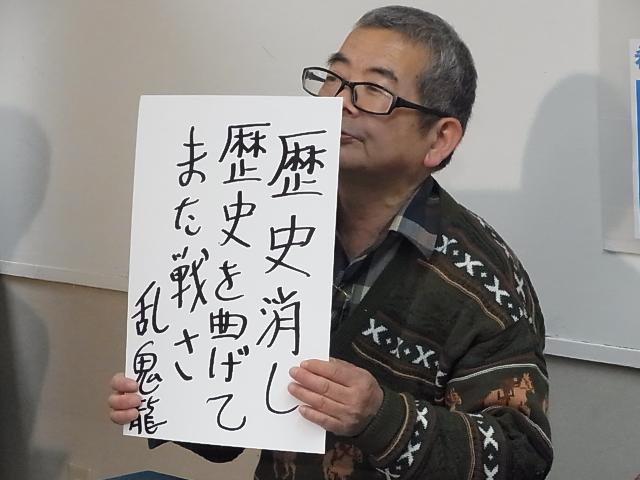 歴史消し
歴史を曲げて
また戦さ
乱鬼龍